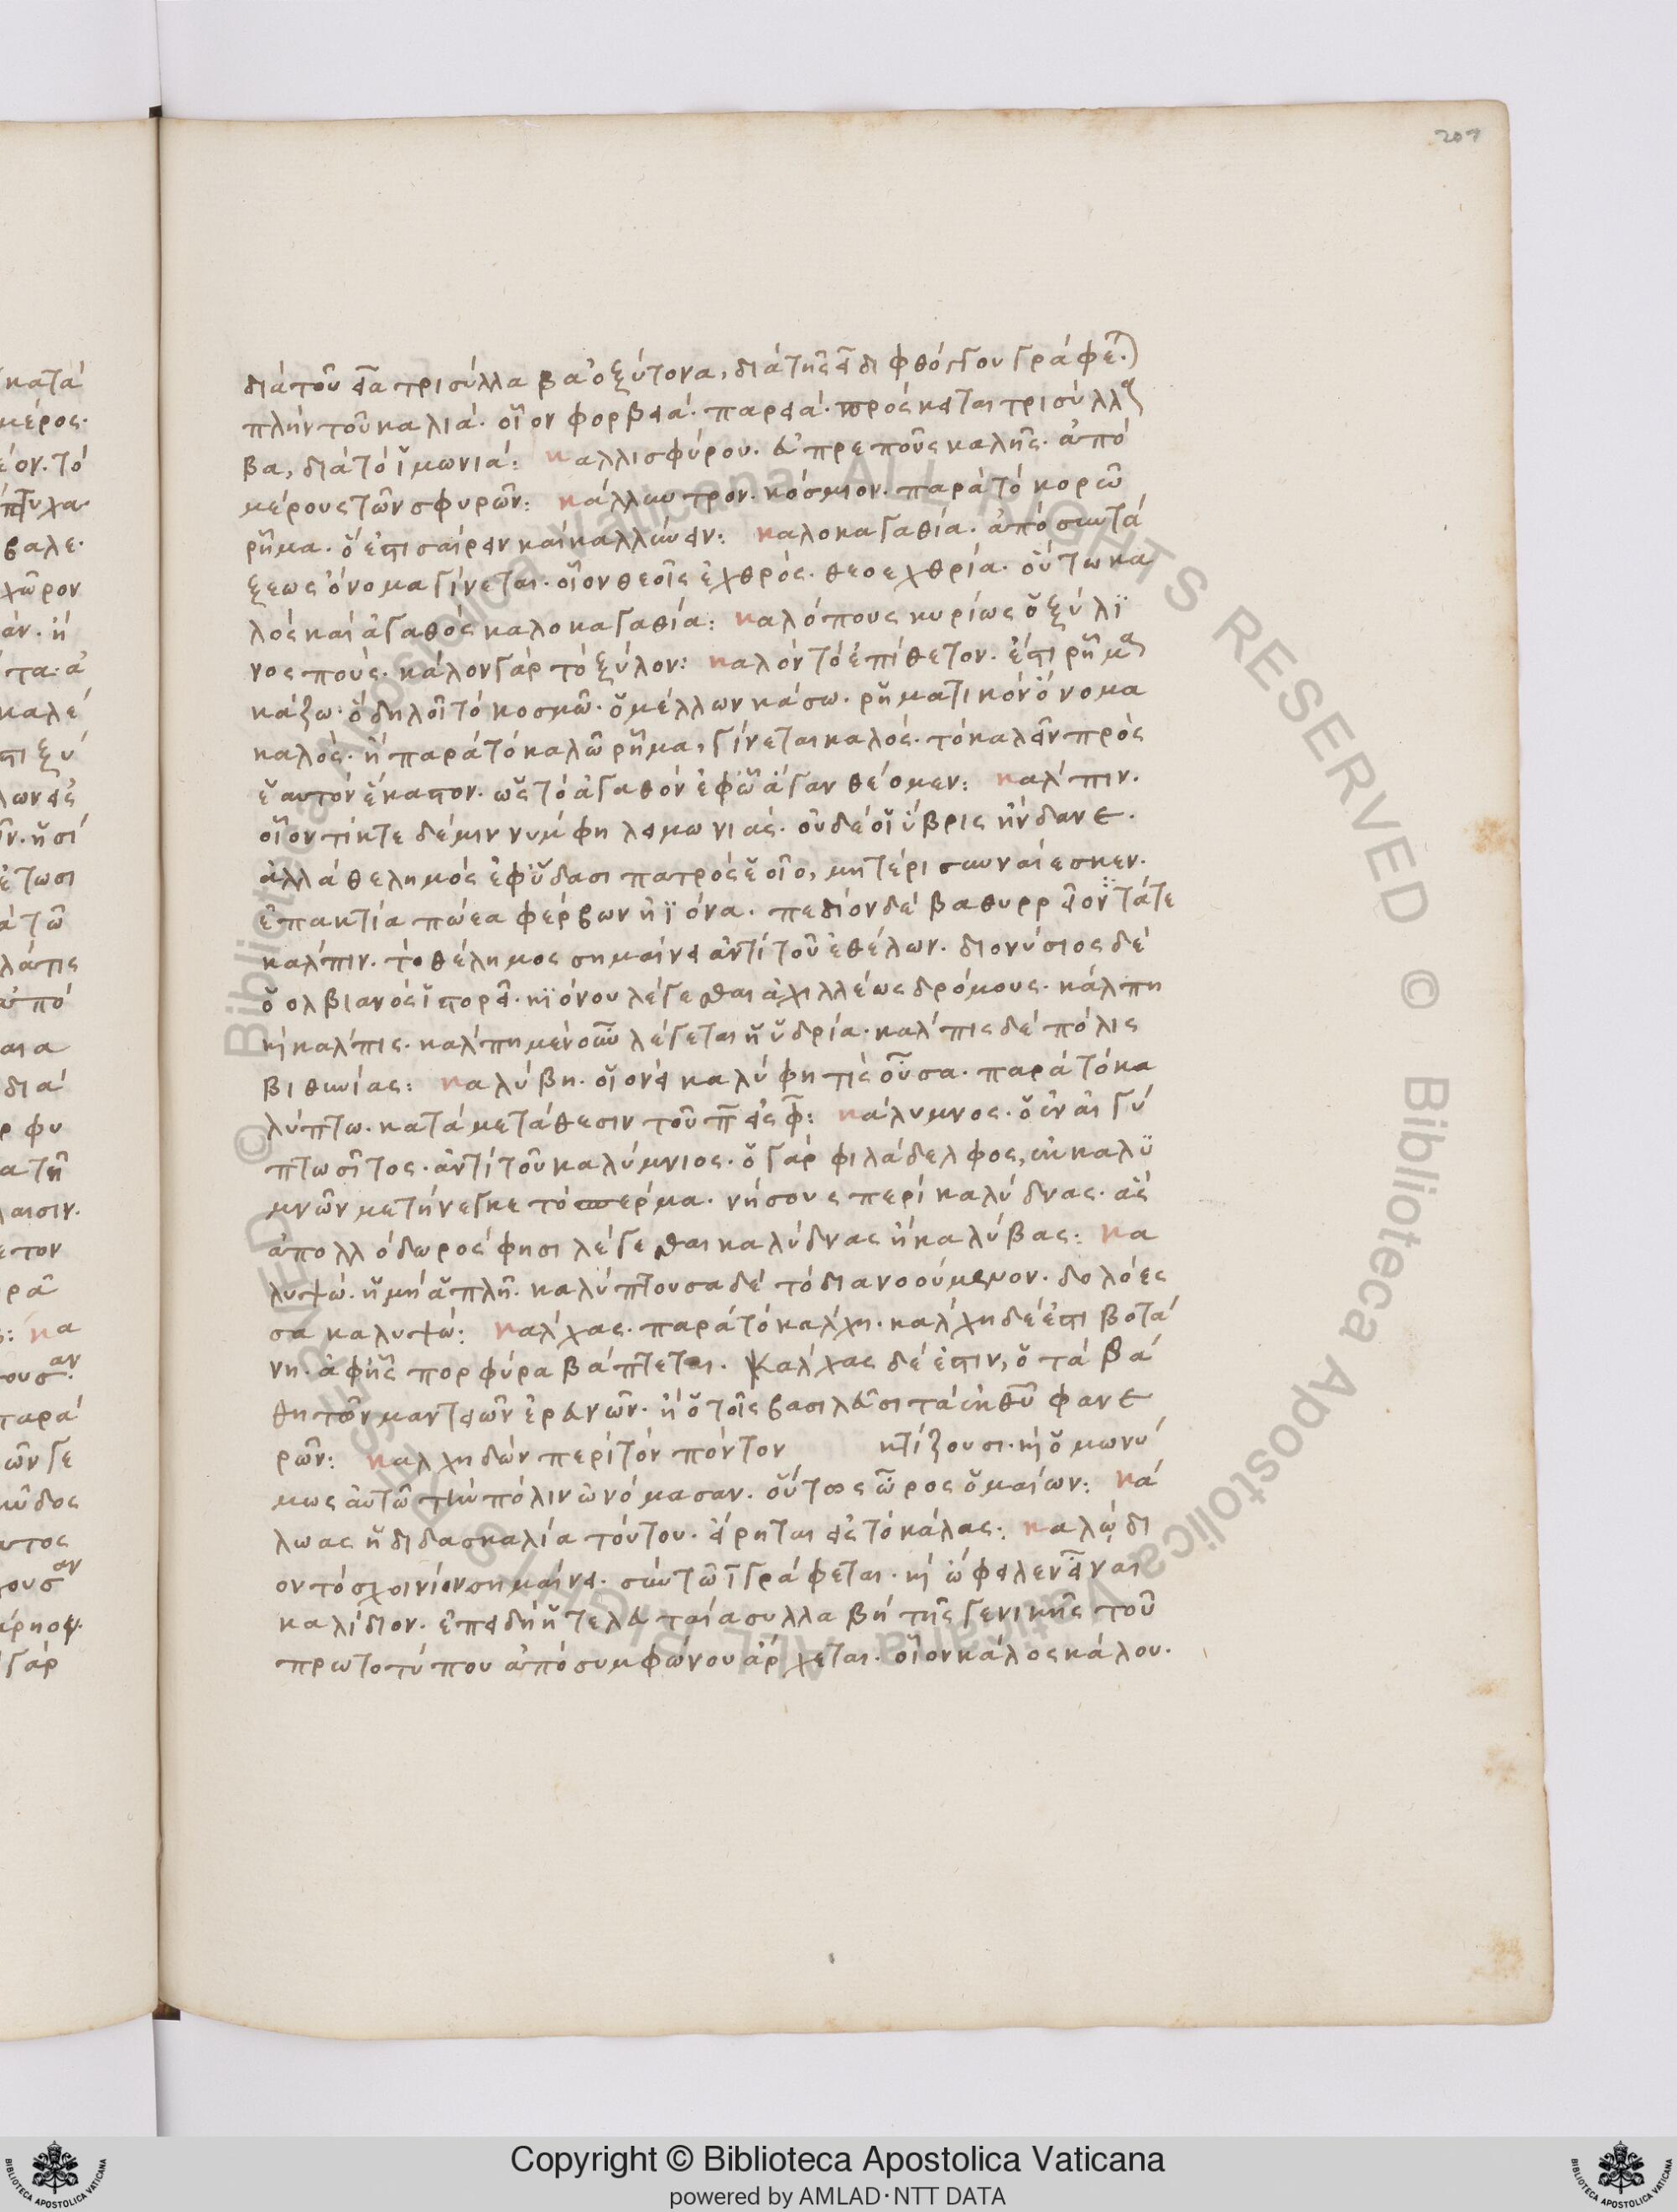 207
διὰ τοῦ εια τρισύλλαβα ὀξύτονα, διὰ τῆς ει διφθόγγου γράφετ.
πλὴν τοῦ καλιά. οἷον φορβειά. παρειά. πρόσκειται τρισύλλα
βα, διὰ τὸ ἱμονιά: καλλισφύρου. εὐπρεποῦς καλῆς. ἀπὸ
μέρους τῶν σφυρῶν: κάλλυντρον. κόσμιον. παρὰ τὸ κορῶ
ρῆμα. ὅ ἐστι σαίρειν καὶ καλλύνειν: καλοκαγαθία. ἀπὸ συντά
ξεως ὄνομα γίνεται. οἷον θεοῖς ἐχθρὸς. θεοεχθρία. οὕτω κα
λὸς καὶ ἀγαθὸς καλοκαγαθία: καλόπους κυρίως ὁ ξύλϊ
νος πούς. κάλον γὰρ τὸ ξύλον: καλὸν τὸ ἐπίθετον. ἔστι ρῆμα
κάζω. ὃ δηλοῖ τὸ κοσμῶ. ὁ μέλλων κάσω. ρηματικὸν ὄνομα
καλὸς. ἢ παρὰ τὸ καλῶ ρῆμα, γίνεται καλός. τὸ καλεῖν πρὸς
ἑαυτὸν ἕκαστον. ὡς τὸ ἀγαθὸν ἐφ' ὧ ἄγαν θέομεν: καλπιν.
οἷον τίκτε δέ μιν νύμφη λειμωνιάς. οὐδέ οἱ ὕβρις ἥνδανε.
ἀλλὰ θελημὸς ἐφ' ὕδασι πατρὸς ἑοῖο, μητέρι συνναίεσκεν.
ἐπακτία πώεα φέρβων ἠϊόνα. πεδίον δὲ βαθυρρείοντά τε
κάλπιν. τὸ θέλημος σημαίνει ἀντὶ τοῦ ἐθέλων. διονύσιος δὲ
ὁ ὀλβιανὸς ἱστορεῖ. κϊόνου λέγεσθαι ἀχιλλέως δρόμους. κάλπη
καὶ κάλπις. κάλπη μὲν οὖν λέγεται ἡ ὑδρία. κάλπις δὲ πόλις
βιθυνίας: καλύβη. οἱονεὶ καλύφη τὶς οὖσα. παρὰ τὸ κα
λύπτω. κατὰ μετάθεσιν τοῦ π εἰς φ: κάλυμνος. ὁ ἐν αἰγύ
πτω σῖτος. ἀντὶ τοῦ καλύμνιος. ὁ γὰρ φιλάδελφος, ἐκ καλυ
μνῶν μετήνεγκε τὸ σπέρμα. νήσους περὶ καλύδνας. ἃς
ἀπολλόδωρός φησι λέγεσθαι καλύδνας ἢ καλύβας: κα
λυψώ. ἡ μὴ ἁπλῆ. καλύπτουσα δὲ τὸ διανοούμενον. δολόες
σα καλυψώ: κάλχας. παρὰ τὸ κάλχη. κάλχη δὲ ἐστι βοτά
νη. ἀφ' ἧς πορφύρα βάπτεται. Κάλχας δὲ ἐστιν, ὁ τὰ βά
θη τῶν μαντειῶν ἐρευνῶν. ἢ ὁ τοῖς βασιλεῦσι τὰ ἐκ θυ φανε
ρῶν: καλχηδὼν περὶ τὸν πόντον κτίζουσι. καὶ ὁμωνύ
μως αὐτῶ τὴν πόλιν ὠνόμασαν. οὕτως ὧρος ὁ μαίων: κά
λωας ἡ διδασκαλία τούτου. εἴρηται εἰς τὸ κάλας: καλώδι
ον τὸ σχοινίον σημαίνει. σὺν τῶ ι γράφεται. καὶ ὤφειλεν εἶναι
καλίδιον. ἐπειδὴ ἡ τελευταία συλλαβὴ τῆς γενικῆς τοῦ
πρωτοτύπου ἀπὸ συμφώνου ἄρχεται. οἷον κάλος κάλου.
Copyright © Biblioteca Apostolica Vaticana
powered by AMLAD·NTT DATA